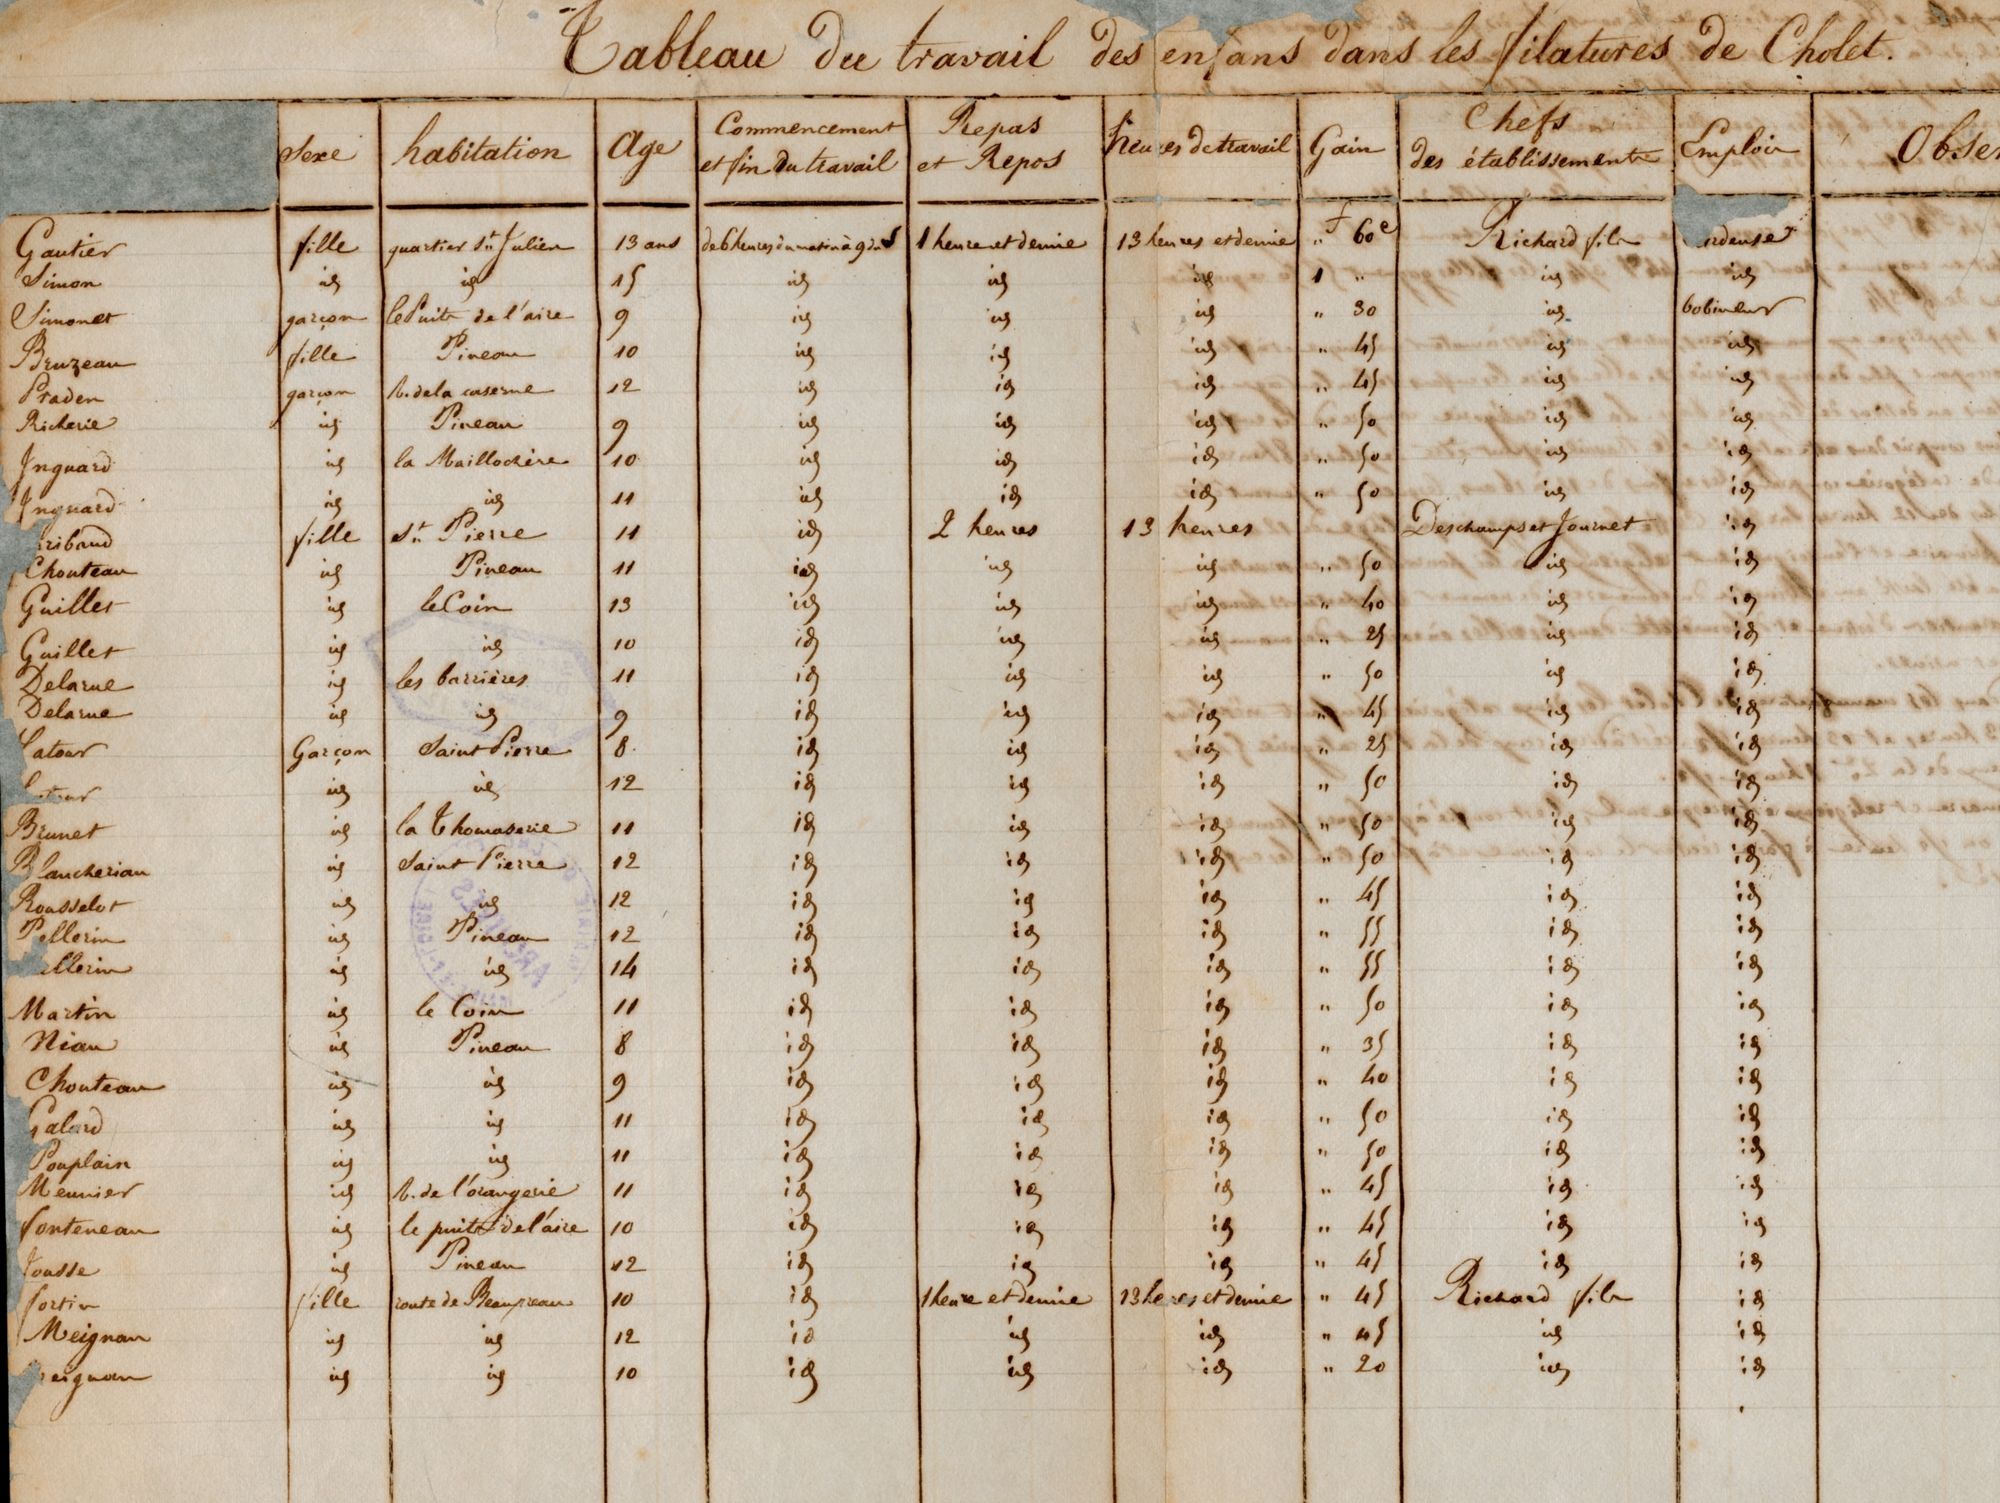 Tableau du travail des enfans dans les filatures de Cholet.
Sexe habitation Age Commencement et fin du travail Repas et Repos heures de travail Gain Chefs des établissements Emploi Obser
Gautier fille quartier St Julien 13 ans de 6 heures du matin à 9 du S 1 heure et demie 13 heures et demie " F 60 c Richard fils rdeuse
Simon id id 15 id id id 1 " id id
Simonet garçon le Puits de l'aire 9 id id id " 30 id bobineur
Bruzeau fille Pineau 10 id id id " 45 id id
Praden garçon r. de la caserne 12 id id id " 45 id id
Richerie id Pineau 9 id id id " 50 id id
Inguard id la Maillochère 10 id id id " 50 id id
Inguard id id 11 id id id " 50 id id
ribaud fille St Pierre 11 id 2 heures 13 heures Deschamps et Journet id
Chouteau id Pineau 11 id id id " 50 id id
Guillet id le Coin 13 id id id " 40 id id
Guillet id id 10 id id id " 25 id id
Delarue id les barrières 11 id id id " 50 id id
Delarue id id 9 id id id " 45 id id
Latour Garçon Saint Pierre 8 id id id " 25 id id
id id 12 id id id " 50 id id
Brunet id la Thomaserie 11 id id id " 50 id id
Blancheriau id Saint Pierre 12 id id id " 50 id id
Rousselot id id 12 id id id " 45 id id
Pellerin id Pineau 12 id id id " 55 id id
ellerin id id 14 id id id " 55 id id
Martin id le Coin 11 id id id " 50 id id
Niau id Pineau 8 id id id " 35 id id
Chouteau id id 9 id id id " 40 id id
Galard id id 11 id id id " 50 id id
Pouplain id id 11 id id id " 50 id id
Meunier id r. de l'orangerie 11 id id id " 45 id id
fonteneau id le puits de l'aire 10 id id id " 45 id id
Jousse id Pineau 12 id id id " 45 id id
fortin fille route de Beaupreau 10 id 1 heure et demie 13 heures et demie " 45 Richard fils id
Meignan id id 12 id id id " 45 id id
eignan id id 10 id id id " 20 id id